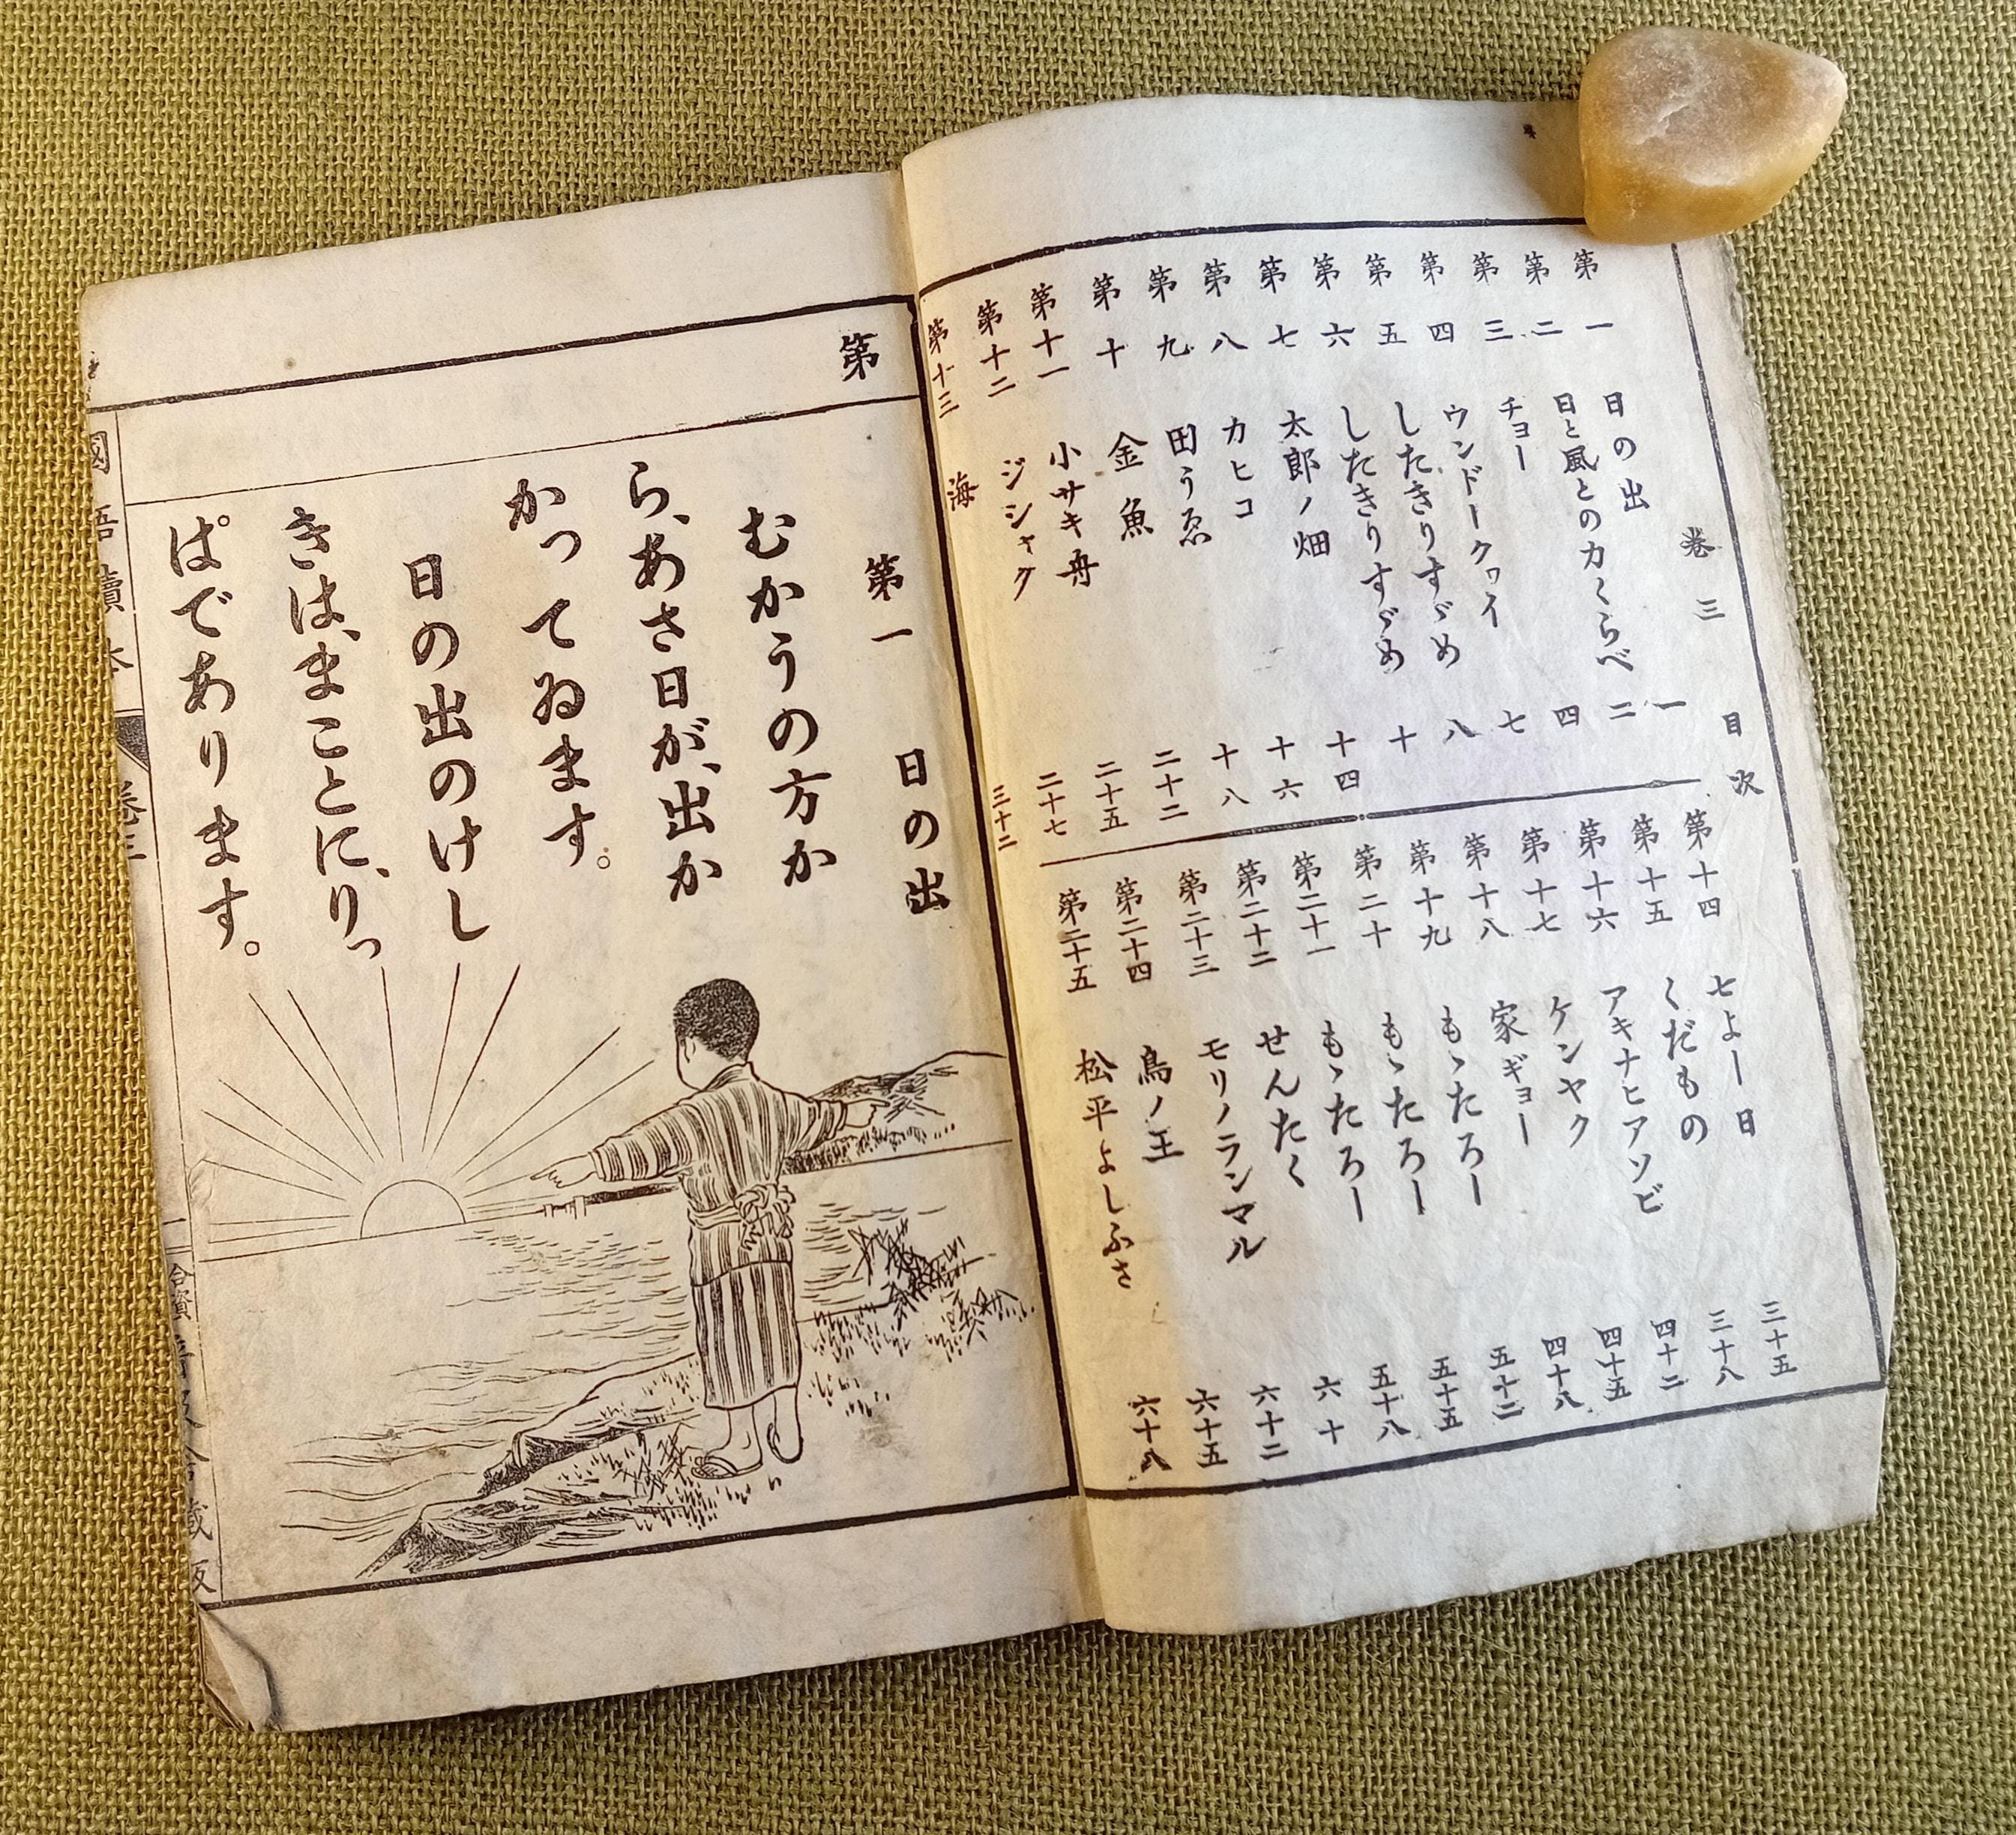 巻三 目次
第一 日の出 一
第二 日と風との力くらべ 二
第三 チョー 四
第四 ウンドークヮイ 七
第五 したきりすゞめ 八
第六 したきりすゞめ 十
第七 太郎ノ畑 十四
第八 カヒコ 十六
第九 田うゑ 十八
第十 金魚 二十二
第十一 小サキ舟 二十五
第十二 ジシャク 二十七
第十三 海 三十二
第十四 七よー日 三十五
第十五 くだもの 三十八
第十六 アキナヒアソビ 四十二
第十七 ケンヤク 四十五
第十八 家ギョー 四十八
第十九 もゝたろー 五十二
第二十 もゝたろー 五十五
第二十一 もゝたろー 五十八
第二十二 せんたく 六十
第二十三 モリノランマル 六十二
第二十四 鳥ノ王 六十五
第二十五 松平よしふさ 六十八
第
第一 日の出
むかうの方か
ら、あさ日が、出か
かってゐます。
日の出のけし
きは、まことに、りっ
ぱであります。
國語讀本 巻三 一 合資